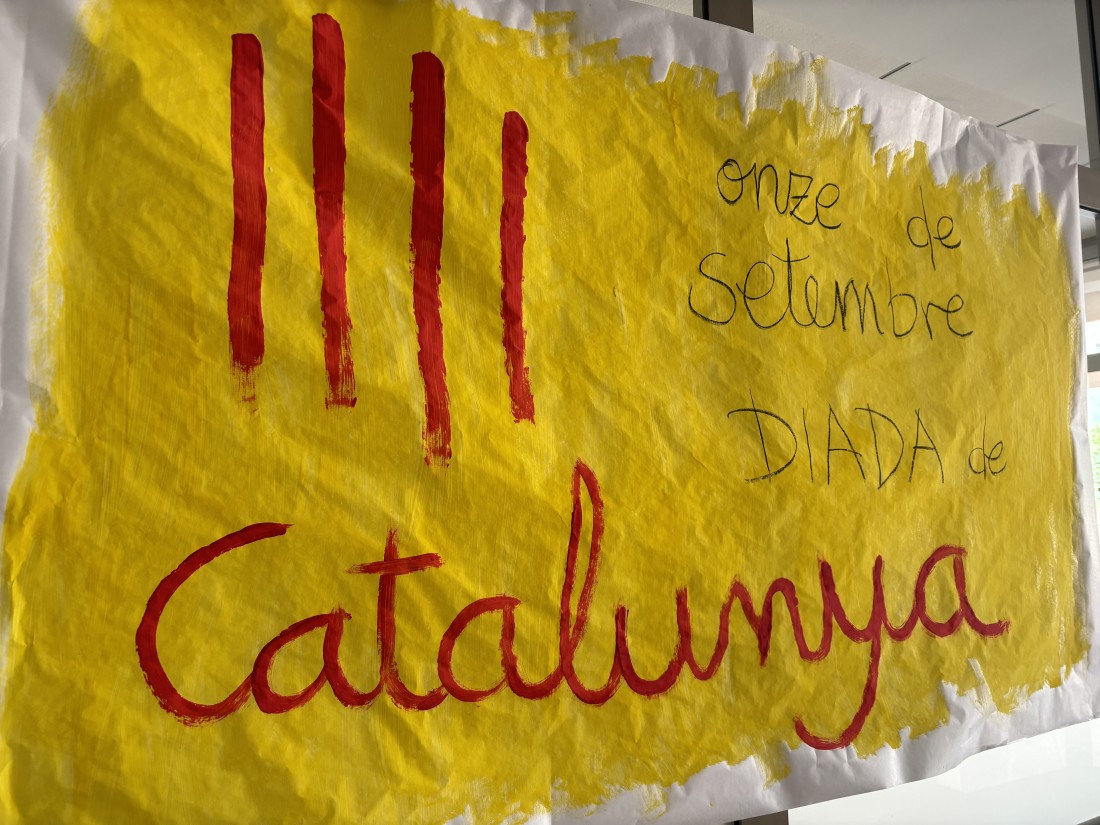 onze de
setembre
DIADA de
Catalunya